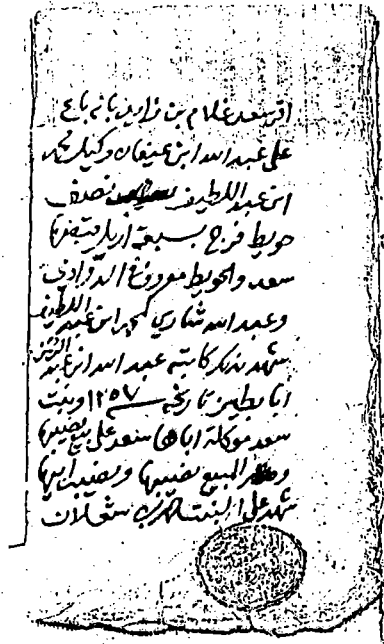 اقر سعد غلام بن زايد بانه باع
على عبد الله ابن عيفان وكيل محمد
ابن عبد اللطيف نصف
حويط فرج بسبعة اريل قبضها
سعد والحويط معروف الدوادي
وعبد الله شاري لمحمد ابن عبد اللطيف
شهد بذلك كاتبه عبد الله ابن عبد الرحمن
ابا بطين تاريخه سنة ١٢٥٧ وبنت
سعد موكلة اباها سعد على بيع نصيبها
المبيع نصيبها ونصيب ابيها
شهد على البنت شعلان